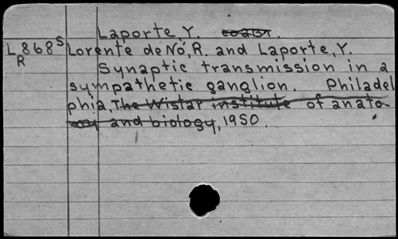 Laporte, Y. coaut.
L868s Lorente de Nó, R. and Laporte, Y.
R Synaptic transmission in a
sympathetic ganglion. Philadel
phia, The Wistar institute of anato
my and biology, 1950.